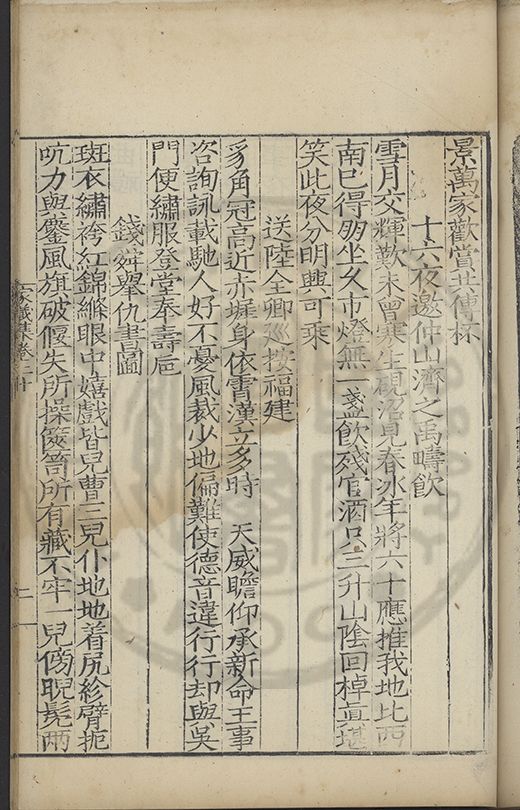 景萬家歡賞共傳杯
十六夜邀仲山濟之禹疇飲
雪月交輝歎未曾寒生硯沼見春冰年將六十應推我地比西
南已得朋坐久市燈無一盞飲殘官酒只三升山陰回棹真堪
笑此夜分明興可乘
送陸全卿巡按福建
豸角冠高近赤墀身依霄漢立多時 天威瞻仰承新命王事
咨詢詠載馳人好不憂風裁少地偏難使德音違行行却與吳
門便繡服登堂奉壽巵
錢舜舉仇書圖
斑衣繡袴紅錦絛眼中嬉戲皆兒曹三兒仆地地着尻紾臂扼
吭力與鏖風旗破偃失所操篋笥所有藏不牢一兒傍睨髡兩
家藏集卷二十
二